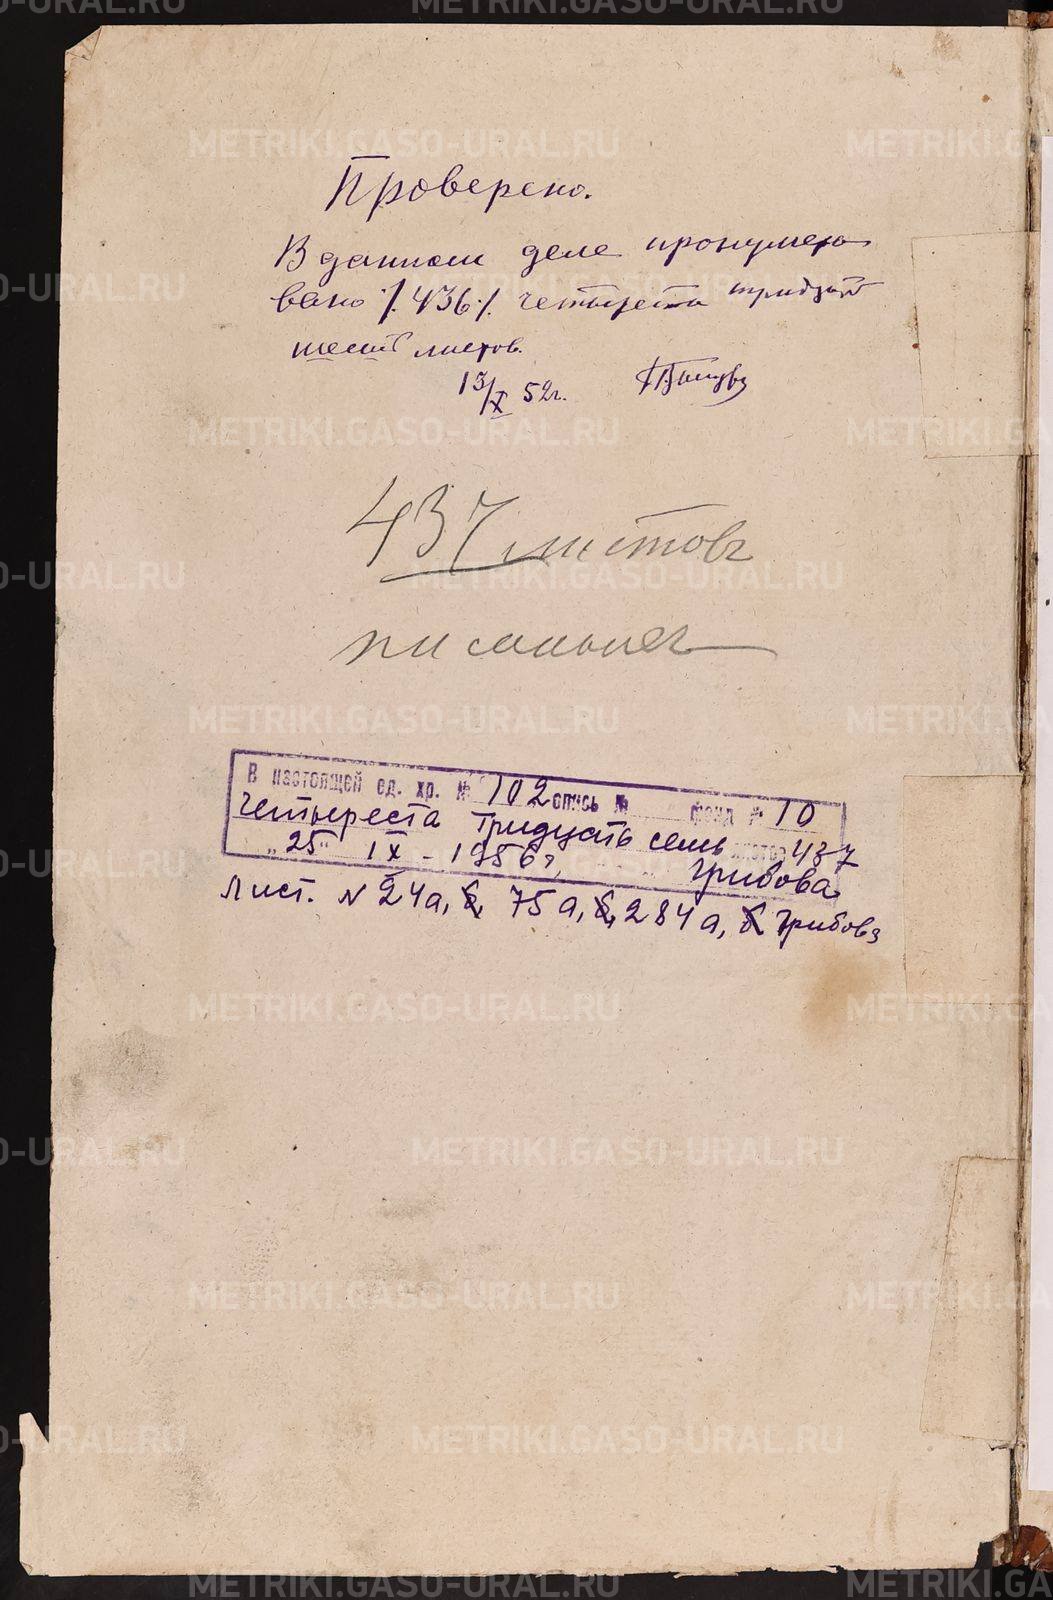 Проверено.
В данном деле пронумеро
вано /.436./. четыреста тридцать
шесть листов.
13/X 52г.
437 листов
письмен
В настоящей ед. хр. № 102 опись № фонд № 10
четыреста тридцать семь листов 437
„25" IX - 1956г. Грибова
Лист. N 24а, 75а, 284а, Грибова
METRIKI.GASO-URAL.RU